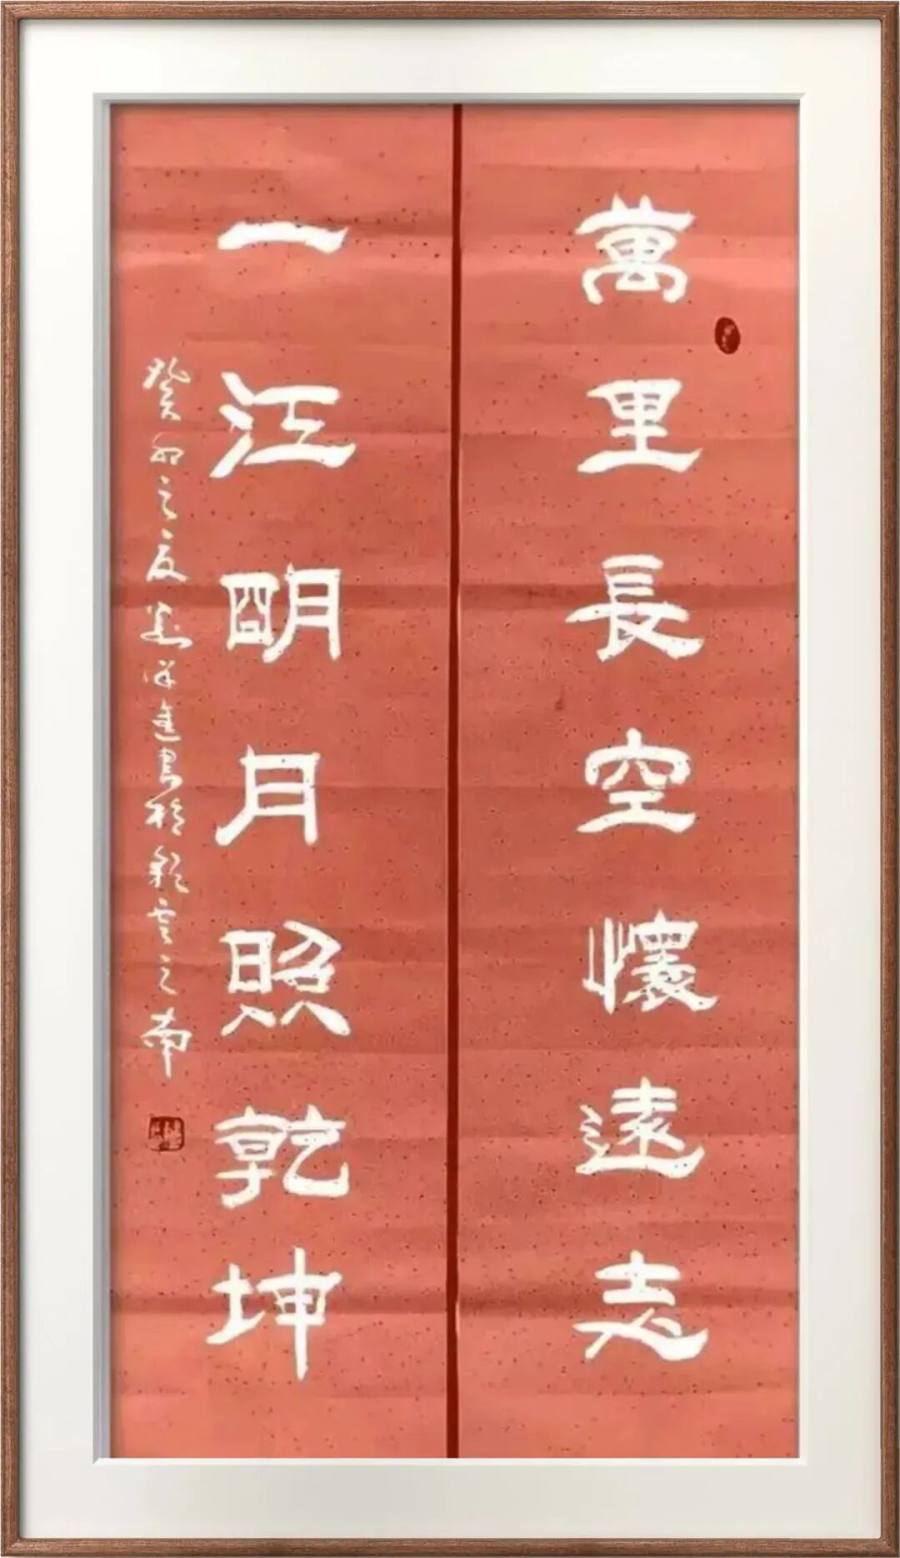 萬里長空懷遠志
一江明月照乾坤
癸卯之夏 進書於彩雲之南